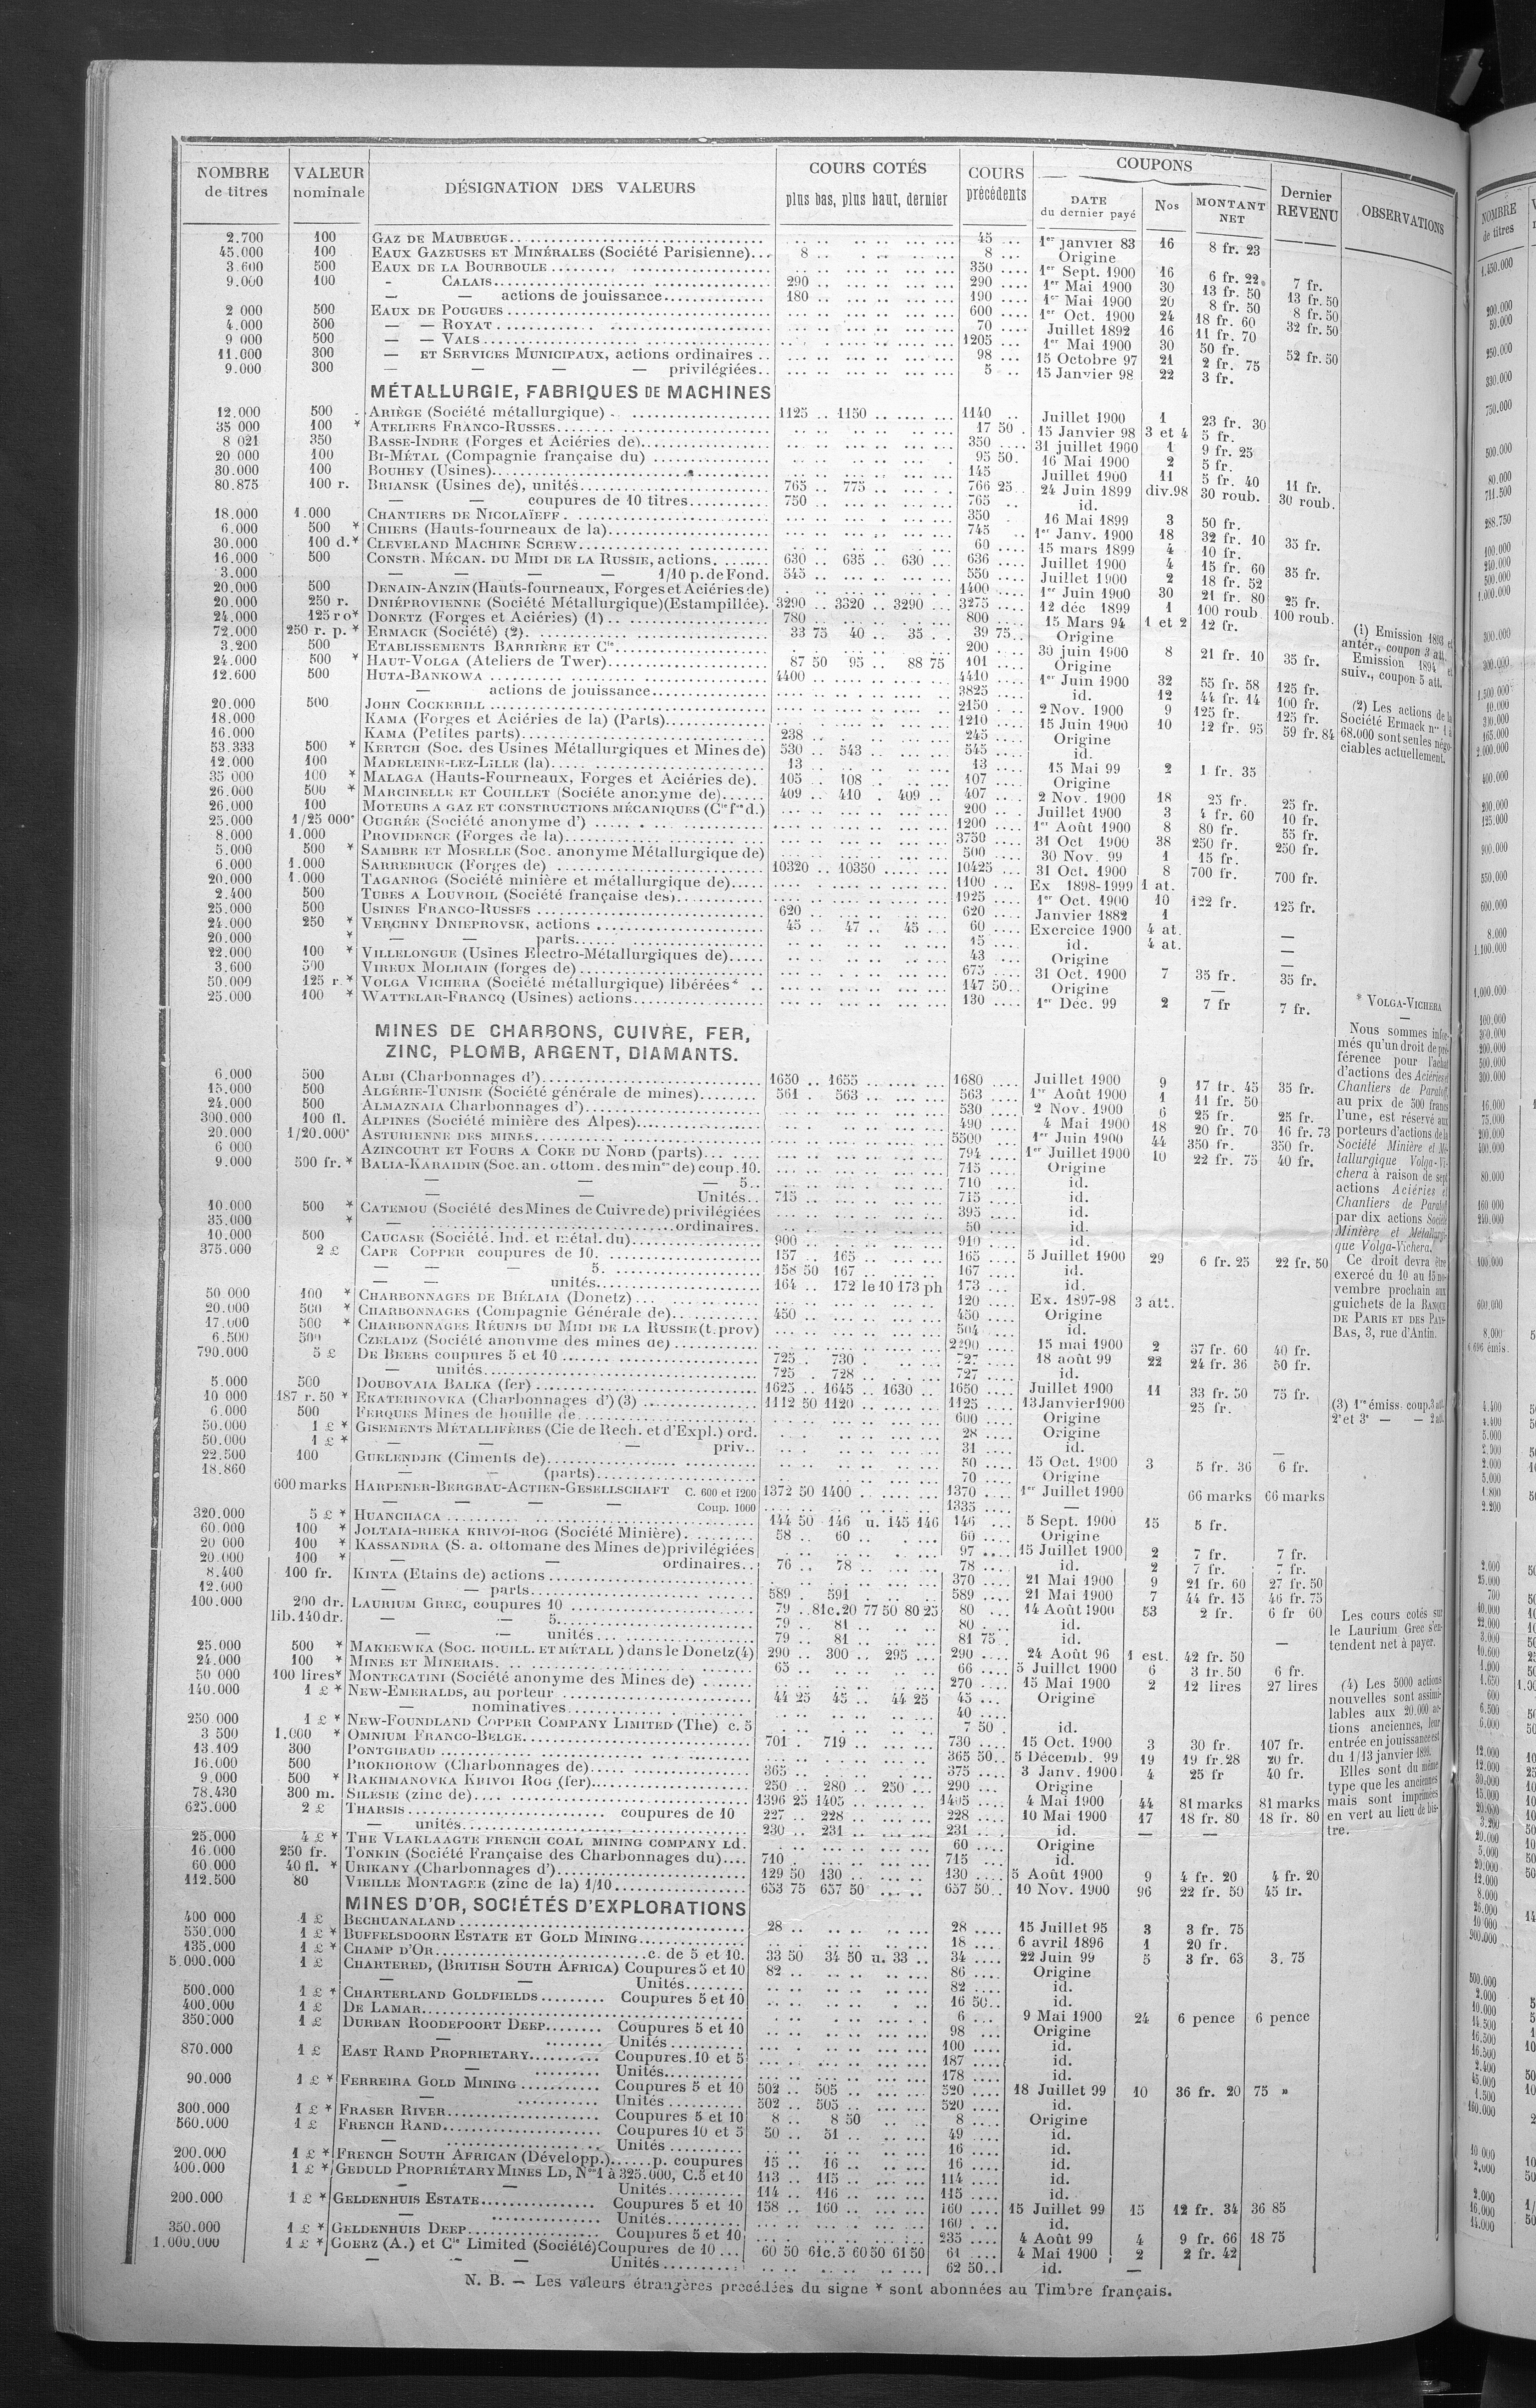 NOMBRE de titres | VALEUR nominale | DÉSIGNATION DES VALEURS | COURS COTÉS plus bas, plus haut, dernier | COURS précédents | COUPONS DATE du dernier payé | Nos | MONTANT NET | Dernier REVENU | OBSERVATIONS
2.700 100 GAZ DE MAUBEUGE 45 1er janvier 83 16 8 fr. 23
45.000 100 EAUX GAZEUSES ET MINÉRALES (Société Parisienne) 8 8 Origine
3.600 500 EAUX DE LA BOURBOULE 350 1er Sept. 1900 16 6 fr. 22 7 fr.
9.000 100 - CALAIS 290 290 1er Mai 1900 30 13 fr. 50 13 fr. 50
— — actions de jouissance 180 190 1er Mai 1900 20 8 fr. 50 8 fr. 50
2 000 500 EAUX DE POUGUES 600 1er Oct. 1900 24 18 fr. 60 32 fr. 50
4.000 500 — — ROYAT 70 Juillet 1892 16 11 fr. 70
9 000 500 — — VALS 1205 1er Mai 1900 30 50 fr. 52 fr. 50
11.000 300 — ET SERVICES MUNICIPAUX, actions ordinaires 98 15 Octobre 97 21 2 fr. 75
9.000 300 — — — — privilégiées 5 15 Janvier 98 22 3 fr.
MÉTALLURGIE, FABRIQUES DE MACHINES
12.000 500 ARIÈGE (Société métallurgique) 1125 1150 1140 Juillet 1900 1 23 fr. 30
35 000 100 * ATELIERS FRANCO-RUSSES 17 50 15 Janvier 98 3 et 4 5 fr.
8 021 350 BASSE-INDRE (Forges et Aciéries de) 350 31 juillet 1900 1 9 fr. 25
20 000 100 BI-MÉTAL (Compagnie française du) 95 50 16 Mai 1900 2 5 fr.
30.000 100 BOUHEY (Usines) 145 Juillet 1900 11 5 fr. 40 11 fr.
80.875 100 r. BRIANSK (Usines de), unités 765 775 766 25 24 Juin 1899 div.98 30 roub. 30 roub.
— — coupures de 10 titres 750 765 id.
18.000 1.000 CHANTIERS DE NICOLAÏEFF 350 16 Mai 1899 3 50 fr.
6.000 500 * CHIERS (Hauts-fourneaux de la) 745 1er Janv. 1900 18 32 fr. 10 35 fr.
30.000 100 d.* CLEVELAND MACHINE SCREW 60 15 mars 1899 4 10 fr.
16.000 500 CONSTR. MÉCAN. DU MIDI DE LA RUSSIE, actions 630 635 630 636 Juillet 1900 4 15 fr. 60 35 fr.
3.000 — — — — 1/10 p. de Fond. 545 550 Juillet 1900 2 18 fr. 52
20.000 500 DENAIN-ANZIN (Hauts-fourneaux, Forges et Aciéries de) 1400 1er Juin 1900 30 21 fr. 80 25 fr.
20.000 250 r. DNIÉPROVIENNE (Société Métallurgique)(Estampillée) 3290 3320 3290 3275 12 déc 1899 1 100 roub 100 roub.
24.000 125 r o* DONETZ (Forges et Aciéries) (1) 780 800 15 Mars 94 1 et 2 12 fr.
72.000 250 r. p. * ERMACK (Société) (2) 33 75 40 35 39 75 Origine
3.200 500 ETABLISSEMENTS BARRIÈRE ET Cie 200 30 juin 1900 8 21 fr. 10 35 fr.
24.000 500 * HAUT-VOLGA (Ateliers de Twer) 87 50 95 88 75 101 Origine
12.600 500 HUTA-BANKOWA 4400 4410 1er Juin 1900 32 55 fr. 58 125 fr.
— actions de jouissance 3825 id. 12 44 fr. 14 100 fr.
20.000 500 JOHN COCKERILL 2150 2 Nov. 1900 9 125 fr. 125 fr.
18.000 KAMA (Forges et Aciéries de la) (Parts) 1210 15 Juin 1900 10 12 fr. 95 59 fr. 84
16.000 KAMA (Petites parts) 238 245 Origine
53.333 500 * KERTCH (Soc. des Usines Métallurgiques et Mines de) 530 543 545 id.
12.000 100 MADELEINE-LEZ-LILLE (la) 13 13 15 Mai 99 2 1 fr. 35
35 000 100 * MALAGA (Hauts-Fourneaux, Forges et Aciéries de) 105 108 107 Origine
26.000 500 * MARCINELLE ET COUILLET (Société anonyme de) 409 410 409 407 2 Nov. 1900 18 25 fr. 25 fr.
26.000 100 MOTEURS A GAZ ET CONSTRUCTIONS MÉCANIQUES (Cie fse d.) 200 Juillet 1900 3 4 fr. 60 10 fr.
25.000 1/25 000e OUGRÉE (Société anonyme d') 1200 1er Août 1900 8 80 fr. 55 fr.
8.000 1.000 PROVIDENCE (Forges de la) 3750 31 Oct 1900 38 250 fr. 250 fr.
5.000 500 * SAMBRE ET MOSELLE (Soc. anonyme Métallurgique de) 500 30 Nov. 99 1 15 fr.
6.000 1.000 SARREBRUCK (Forges de) 10320 10350 10425 31 Oct. 1900 8 700 fr. 700 fr.
20.000 1.000 TAGANROG (Société minière et métallurgique de) 1100 Ex 1898-1999 1 at.
2.400 500 TUBES A LOUVROIL (Société française des) 1925 1er Oct. 1900 10 122 fr. 125 fr.
25.000 500 USINES FRANCO-RUSSES 620 620 Janvier 1882 1
24.000 250 * VERCHNY DNIEPROVSK, actions 45 47 45 60 Exercice 1900 4 at. —
20.000 * — — parts 15 id. 4 at. —
22.000 100 * VILLELONGUE (Usines Electro-Métallurgiques de) 43 Origine —
3.600 500 VIREUX MOLHAIN (forges de) 675 31 Oct. 1900 7 35 fr. 35 fr.
50.000 125 r.* VOLGA VICHERA (Société métallurgique) libérées* 147 50 Origine —
25.000 100 * WATTELAR-FRANCQ (Usines) actions 130 1er Déc. 99 2 7 fr 7 fr.
MINES DE CHARBONS, CUIVRE, FER,
ZINC, PLOMB, ARGENT, DIAMANTS.
6.000 500 ALBI (Charbonnages d') 1650 1655 1680 Juillet 1900 9 17 fr. 45 35 fr.
15.000 500 ALGÉRIE-TUNISIE (Société générale de mines) 561 563 563 1er Août 1900 1 11 fr. 50
24.000 500 ALMAZNAIA Charbonnages d') 530 2 Nov. 1900 6 25 fr. 25 fr.
300.000 100 fl. ALPINES (Société minière des Alpes) 490 4 Mai 1900 18 20 fr. 70 16 fr. 73
20.000 1/20.000e ASTURIENNE DES MINES 5500 1er Juin 1900 44 350 fr. 350 fr.
6 000 AZINCOURT ET FOURS A COKE DU NORD (parts) 794 1er Juillet 1900 10 22 fr. 75 40 fr.
9.000 500 fr. * BALIA-KARAIDIN (Soc. an. ottom. des mines de) coup. 10. 715 Origine
— — — 5. 710 id.
Unités 715 715 id.
10.000 500 * CATEMOU (Société des Mines de Cuivre de) privilégiées 395 id.
35.000 * — ordinaires. 50 id.
10.000 500 CAUCASE (Société. Ind. et métal. du) 900 910 id.
375.000 2 £ CAPE COPPER coupures de 10. 157 165 165 5 Juillet 1900 29 6 fr. 25 22 fr. 50
— — — 5. 158 50 167 167 id.
— — unités 164 172 le 10 173 ph 173 id.
50.000 100 * CHARBONNAGES DE BIÉLAIA (Donetz) 120 Ex. 1897-98 3 att.
20.000 500 * CHARBONNAGES (Compagnie Générale de) 450 450 Origine
17.000 500 * CHARBONNAGES RÉUNIS DU MIDI DE LA RUSSIE (t. prov) 504 id.
6.500 500 CZELADZ (Société anonyme des mines de) 2290 15 mai 1900 2 37 fr. 60 40 fr.
790.000 5 £ DE BEERS coupures 5 et 10 725 730 727 18 août 99 22 24 fr. 36 50 fr.
— unités 725 728 727 id.
5.000 500 DOUBOVAIA BALKA (fer) 1625 1645 1630 1650 Juillet 1900 11 33 fr. 50 75 fr.
10 000 187 r. 50 * EKATERINOVKA (Charbonnages d') (3) 1112 50 1120 1125 13 Janvier 1900 25 fr.
6.000 500 FERQUES Mines de houille de 600 Origine
50.000 1 £ * GISEMENTS MÉTALLIFÈRES (Cie de Rech. et d'Expl.) ord. 28 Origine
50.000 1 £ * — — — priv. 31 id. —
22.500 100 GUELENDJIK (Ciments de) 50 15 Oct. 1900 3 5 fr. 36 6 fr.
18.860 — — (parts) 70 Origine
600 marks HARPENER-BERGBAU-ACTIEN-GESELLSCHAFT C. 600 et 1200 1372 50 1400 1370 1er Juillet 1900 66 marks 66 marks
— — — — Coup. 1000 1335 —
320.000 5 £ * HUANCHACA 144 50 146 u. 145 146 146 5 Sept. 1900 15 5 fr.
60.000 100 * JOLTAIA-RIEKA KRIVOI-ROG (Société Minière) 58 60 60 Origine
20 000 100 * KASSANDRA (S. a. ottomane des Mines de) privilégiées 97 15 Juillet 1900 2 7 fr. 7 fr.
20.000 100 * — — ordinaires 76 78 78 id. 2 7 fr. 7 fr.
8.400 100 fr. KINTA (Etains de) actions 370 21 Mai 1900 9 21 fr. 60 27 fr. 50
12.000 — — parts 589 591 589 21 Mai 1900 7 44 fr. 15 46 fr. 75
100.000 200 dr. LAURIUM GREC, coupures 10 79 81c.20 77 50 80 25 80 14 Août 1900 53 2 fr. 6 fr 60
lib. 140 dr. — — 5 79 81 80 id.
— — unités 79 81 81 75 id. —
25.000 500 * MAKEEWKA (SOC. HOUILL. ET MÉTALL ) dans le Donetz (4) 290 300 295 290 24 Août 96 1 est. 42 fr. 50
24.000 100 * MINES ET MINERAIS 65 66 5 Juillet 1900 6 3 fr. 50 6 fr.
50 000 100 lires* MONTECATINI (Société anonyme des Mines de) 270 15 Mai 1900 2 12 lires 27 lires
140.000 1 £ * NEW-EMERALDS, au porteur 44 25 45 44 25 45 Origine
— nominatives 40
250 000 1 £ * NEW-FOUNDLAND COPPER COMPANY LIMITED (The) c. 5 7 50 id.
3 500 1.000 * OMNIUM FRANCO-BELGE 701 719 730 15 Oct. 1900 3 30 fr. 107 fr.
13.109 300 PONTGIBAUD 365 50 5 Décemb. 99 19 19 fr. 28 20 fr.
16.000 500 PROKHOROW (Charbonnages de) 365 375 3 Janv. 1900 4 25 fr 40 fr.
9.000 500 * RAKHMANOVKA KRIVOI ROG (fer) 250 280 250 290 Origine
78.430 300 m. SILÉSIE (zinc de) 1396 25 1405 1405 4 Mai 1900 44 81 marks 81 marks
625.000 2 £ THARSIS coupures de 10 227 228 228 10 Mai 1900 17 18 fr. 80 18 fr. 80
— unités 230 231 231 id. — —
25.000 4 £ * THE VLAKLAAGTE FRENCH COAL MINING COMPANY Ld. 60 Origine
16.000 250 fr. TONKIN (Société Française des Charbonnages du) 710 715 id.
60.000 40 fl. * URIKANY (Charbonnages d') 129 50 130 130 5 Août 1900 9 4 fr. 20 4 fr. 20
112.500 80 VIEILLE MONTAGNE (zinc de la) 1/10 653 75 657 50 657 50 10 Nov. 1900 96 22 fr. 50 45 fr.
MINES D'OR, SOCIÉTÉS D'EXPLORATIONS
400 000 1 £ BECHUANALAND 28 28 15 Juillet 95 3 3 fr. 75
550.000 1 £ * BUFFELSDOORN ESTATE ET GOLD MINING 18 6 avril 1896 1 20 fr.
135.000 1 £ * CHAMP D'OR c. de 5 et 10. 33 50 34 50 u. 33 34 22 Juin 99 5 3 fr. 63 3, 75
5.000.000 1 £ CHARTERED, (BRITISH SOUTH AFRICA) Coupures 5 et 10 82 86 Origine
— — Unités 82 id.
500.000 1 £ * CHARTERLAND GOLDFIELDS Coupures 5 et 10 16 50 id.
400.000 1 £ DE LAMAR 6 9 Mai 1900 24 6 pence 6 pence
350.000 1 £ DURBAN ROODEPOORT DEEP Coupures 5 et 10 98 Origine
— Unités 100 id.
870.000 1 £ EAST RAND PROPRIETARY Coupures. 10 et 5 187 id.
— Unités 178 id.
90.000 1 £ * FERREIRA GOLD MINING Coupures 5 et 10 502 505 520 18 Juillet 99 10 36 fr. 20 75 »
Unités 502 505 520 id.
300.000 1 £ * FRASER RIVER Coupures 5 et 10 8 8 50 8 Origine
560.000 1 £ FRENCH RAND Coupures 10 et 5 50 51 49 id.
— Unités 16 id.
200.000 1 £ * FRENCH SOUTH AFRICAN (Développ.) p. coupures 15 16 16 id.
400.000 1 £ * GEDULD PROPRIÉTARY MINES LD, Nos 1 à 325.000, C. 5 et 10 113 115 114 id.
— — Unités 114 116 115 id.
200.000 1 £ * GELDENHUIS ESTATE Coupures 5 et 10 158 160 160 15 Juillet 99 15 12 fr. 34 36 85
— Unités 160 id.
350.000 1 £ * GELDENHUIS DEEP Coupures 5 et 10 235 4 Août 99 4 9 fr. 66 18 75
1.000.000 1 £ * GOERZ (A.) et Cie Limited (Société) Coupures de 10 60 50 61c.5 60 50 61 50 61 4 Mai 1900 2 2 fr. 42
— — — Unités 62 50 id. —
(1) Emission 1893 et
antér., coupon 3 att.
Emission 1894 et
suiv., coupon 5 att.
(2) Les actions de la
Société Ermack nos 1 à
68.000 sont seules négo-
ciables actuellement.
* VOLGA-VICHERA
—
Nous sommes infor-
més qu'un droit de pré-
férence pour l'achat
d'actions des Aciéries et
Chantiers de Paratoff,
au prix de 500 francs
l'une, est réservé aux
porteurs d'actions de la
Société Minière et Mé-
tallurgique Volga-Vi-
chera à raison de sept
actions Aciéries et
Chantiers de Paratoff
par dix actions Société
Minière et Métallurgi-
que Volga-Vichera.
Ce droit devra être
exercé du 10 au 15 no-
vembre prochain aux
guichets de la BANQUE
DE PARIS ET DES PAYS-
BAS, 3, rue d'Antin.
(3) 1re émiss. coup. 3 att.
2e et 3e — — 2 att.
Les cours cotés sur
le Laurium Grec s'en-
tendent net à payer.
(4) Les 5000 actions
nouvelles sont assimi-
lables aux 20.000 ac-
tions anciennes, leur
entrée en jouissance est
du 1/13 janvier 1899.
Elles sont du même
type que les anciennes
mais sont imprimées
en vert au lieu de bis-
tre.
N. B. — Les valeurs étrangères précédées du signe * sont abonnées au Timbre français.
NOMBRE
de titres